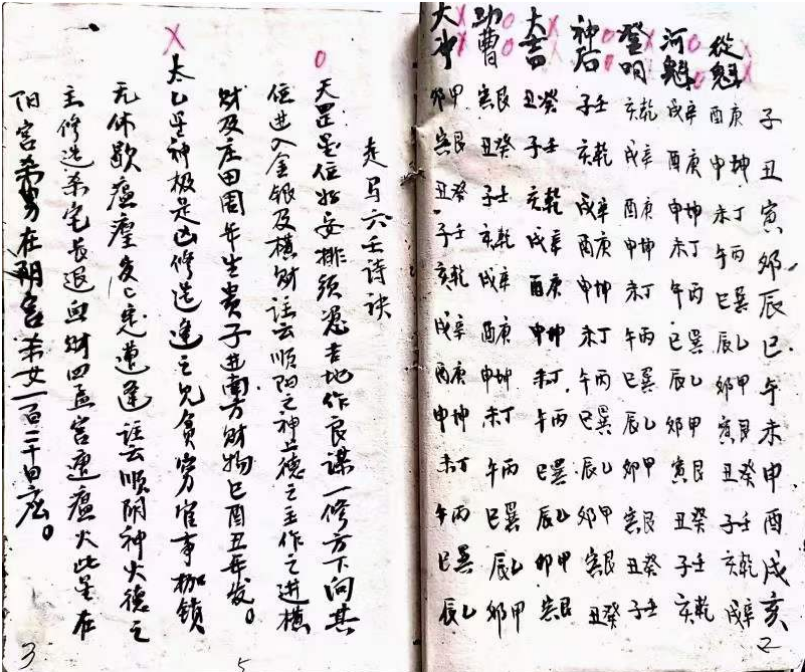 子丑寅卯辰巳午未申酉戌亥
從魁 酉庚 申坤 未丁 午丙 巳巽 辰乙 卯甲 寅艮 丑癸 子壬 亥乾 戌辛
河魁 戌辛 酉庚 申坤 未丁 午丙 巳巽 辰乙 卯甲 寅艮 丑癸 子壬 亥乾
登明 亥乾 戌辛 酉庚 申坤 未丁 午丙 巳巽 辰乙 卯甲 寅艮 丑癸 子壬
神后 子壬 亥乾 戌辛 酉庚 申坤 未丁 午丙 巳巽 辰乙 卯甲 寅艮 丑癸
大吉 丑癸 子壬 亥乾 戌辛 酉庚 申坤 未丁 午丙 巳巽 辰乙 卯甲 寅艮
功曹 寅艮 丑癸 子壬 亥乾 戌辛 酉庚 申坤 未丁 午丙 巳巽 辰乙 卯甲
大冲 卯甲 寅艮 丑癸 子壬 亥乾 戌辛 酉庚 申坤 未丁 午丙 巳巽 辰乙
2
走马六壬诗诀
天罡星位好安排须觅吉地作良谋一修方下向其
位进入金银及横财註云顺阳之神土德之主作之进横
财及庄田周年生贵子进南方财物巳酉丑年发。
太乙星神极是凶修造逢之见贫穷官事枷锁
无休歇瘟瘽定遭逢註云顺阴神火德之
主修造杀宅长退血财四孟宫遭瘟火此星在
阳宫杀男在阴宫杀女一百二十日应。
3
5